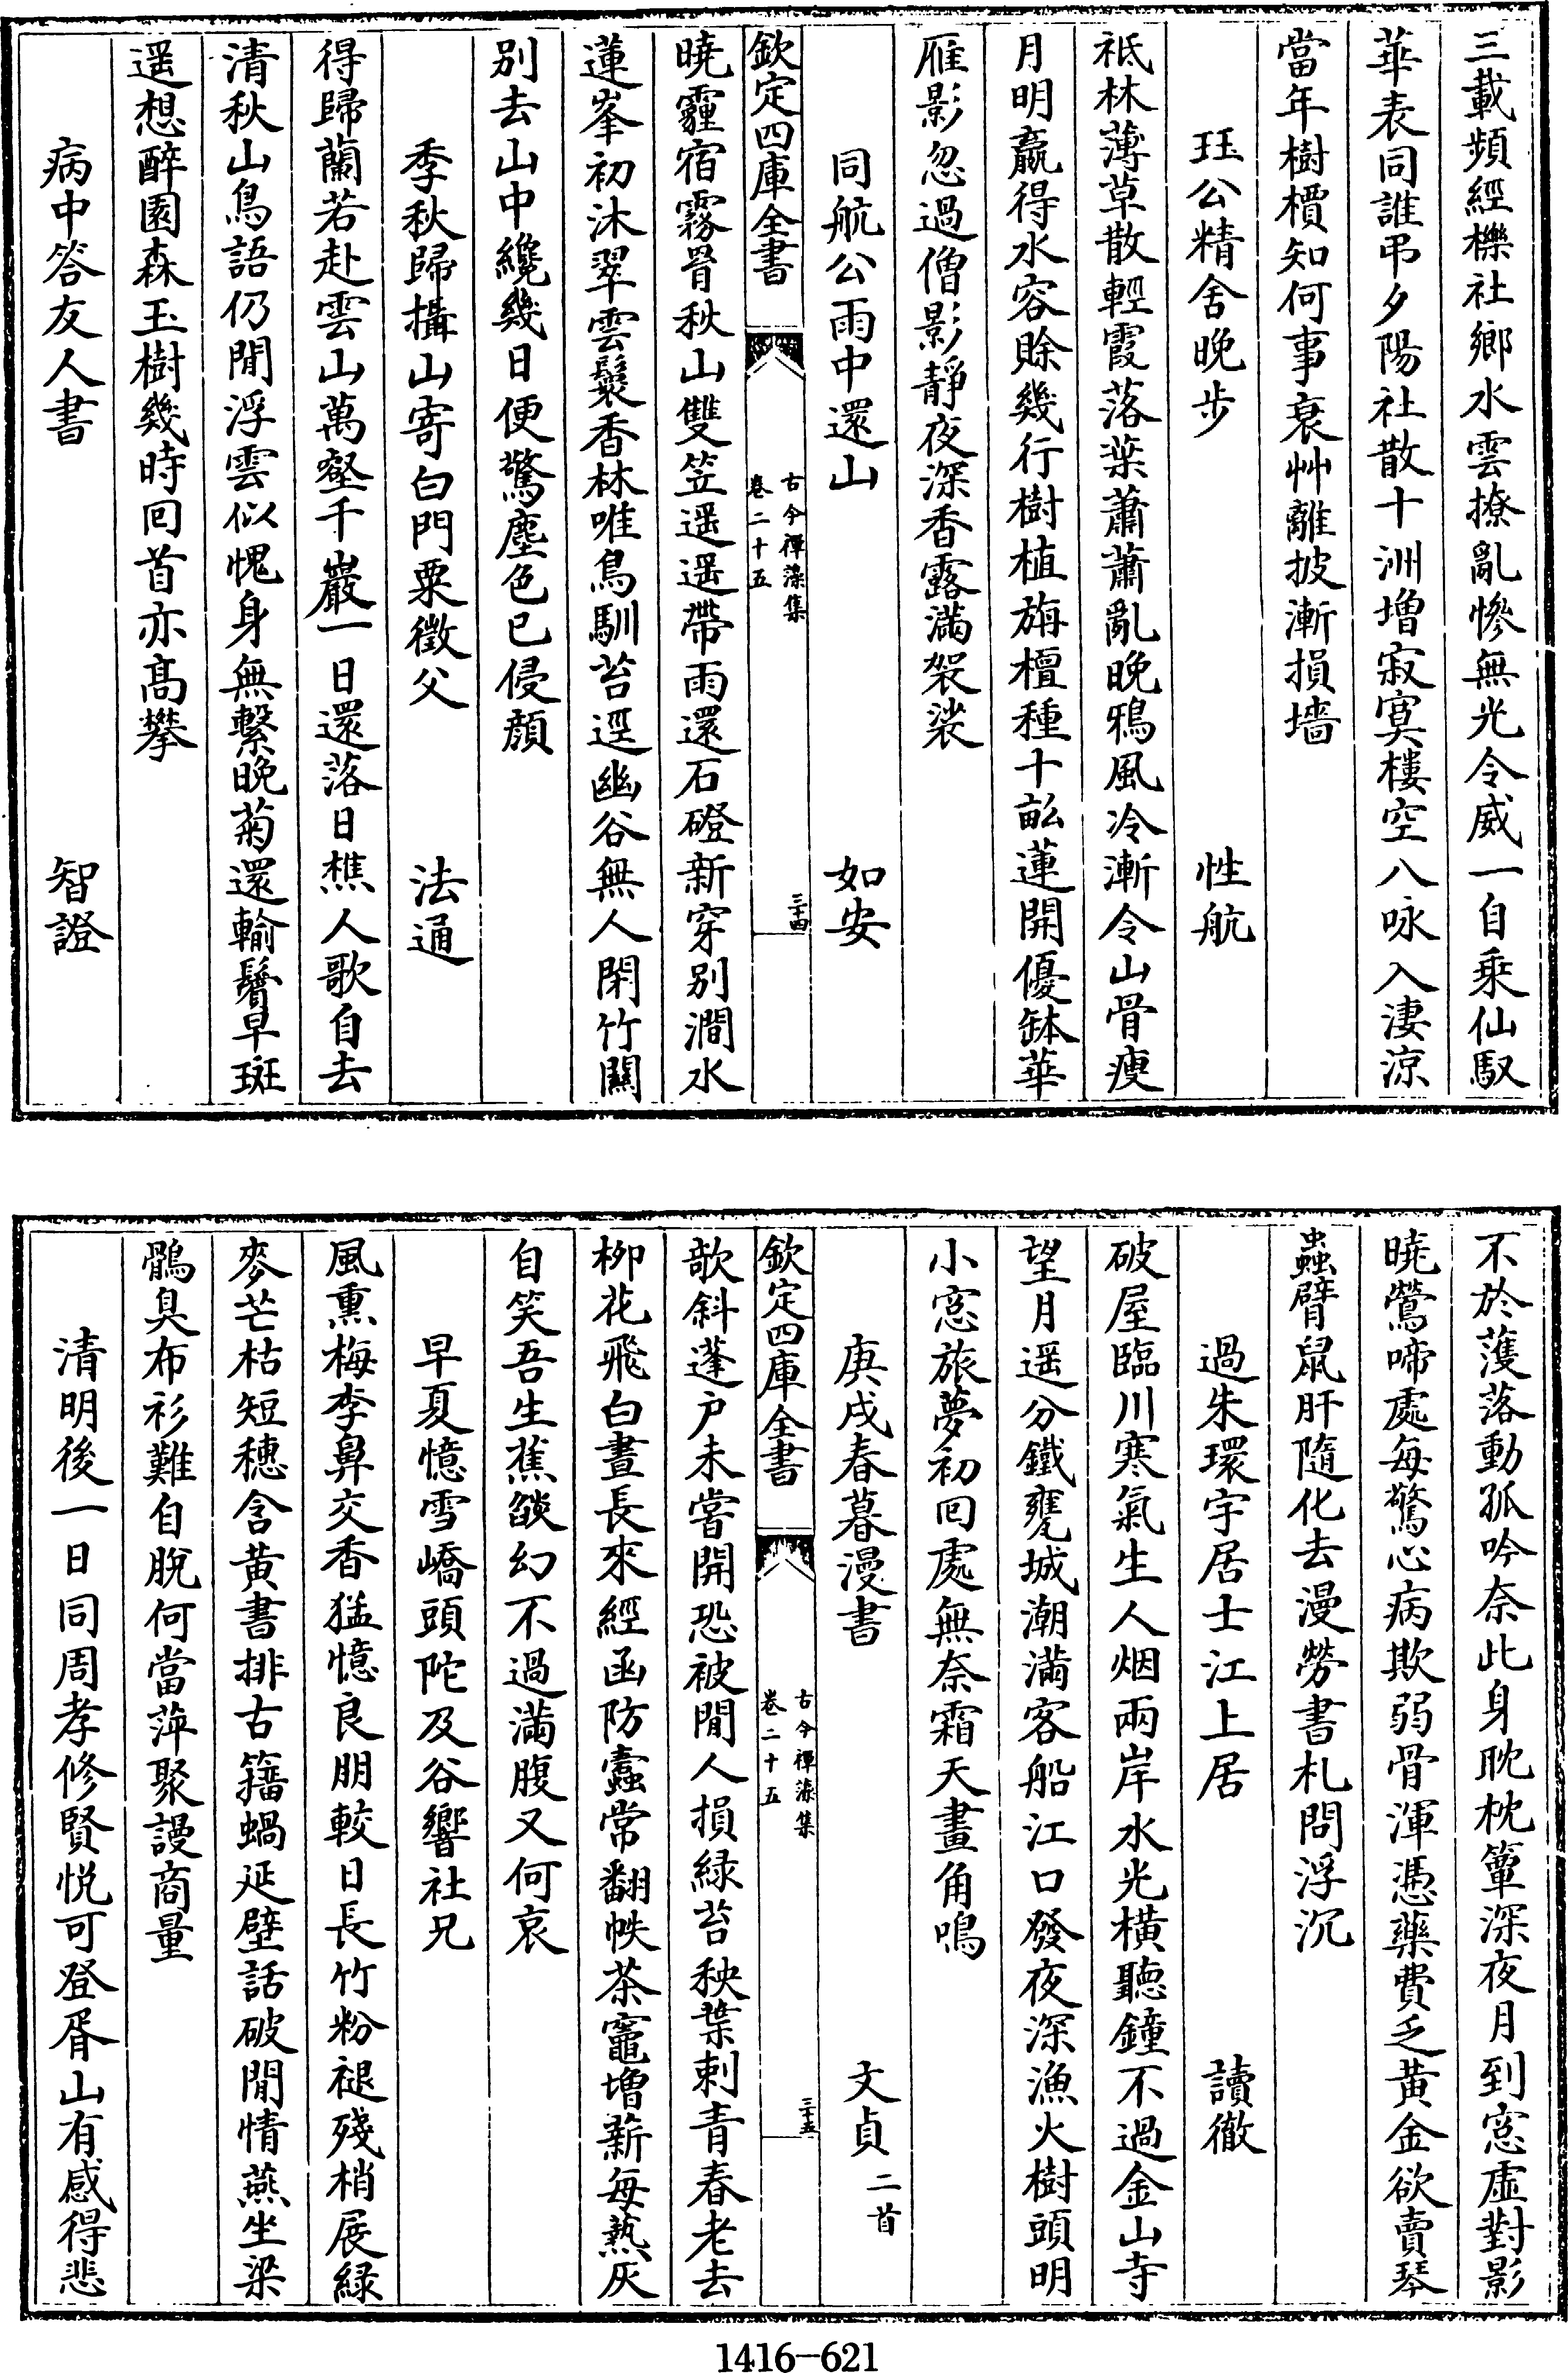 三載頻經櫟社鄉水雲撩亂慘無光令威一自乘仙馭
華表同誰弔夕陽社散十洲增寂寞樓空八咏入淒涼
當年樹櫝知何事衰艸離披漸損墻
珏公精舍晚步 性航
祗林薄草散輕霞落葉蕭蕭亂晚鴉風冷漸令山骨瘦
月明贏得水容賖幾行樹植旃檀種十畝蓮開優鉢華
雁影忽過僧影靜夜深香露滿袈裟
同航公雨中還山 如安
欽定四庫全書
古今禪藻集
卷二十五
三十四
曉霾宿霧罥秋山雙笠遥遥帶雨還石磴新穿別澗水
蓮峯初沐翠雲鬟香林唯鳥馴苔逕幽谷無人閉竹關
別去山中纔幾日便驚塵色已侵顔
季秋歸攝山寄白門粟徵父 法通
得歸蘭若赴雲山萬壑千巖一日還落日樵人歌自去
清秋山鳥語仍閒浮雲似愧身無繫晚菊還輸鬢早斑
遥想醉園森玉樹幾時回首亦髙攀
病中答友人書 智證
不於濩落動孤吟奈此身耽枕簟深夜月到窓虛對影
曉鶯啼處每驚心病欺弱骨渾憑藥費乏黄金欲賣琴
蟲臂鼠肝隨化去漫勞書札問浮沉
過朱環宇居士江上居 讀徹
破屋臨川寒氣生人烟兩岸水光横聽鐘不過金山寺
望月遥分鐵甕城潮滿客船江口發夜深漁火樹頭明
小窓旅夢初回處無奈霜天畫角鳴
庚戌春暮漫書 文貞 二首
欽定四庫全書
古今禪藻集
卷二十五
三十五
欹斜蓬户未嘗開恐被閒人損緑苔秧葉刺青春老去
柳花飛白晝長來經函防蠹常翻帙茶竈增薪每熱灰
自笑吾生蕉燄幻不過滿腹又何哀
早夏憶雪嶠頭陀及谷響社兄
風熏梅李鼻交香猛憶良朋較日長竹粉褪殘梢展緑
麥芒枯短穗含黄書排古籕蝸延壁話破閒情燕坐梁
鶻臭布衫難自脫何當萍聚謾商量
清明後一日同周孝修賢悦可登胥山有感得悲
1416-621